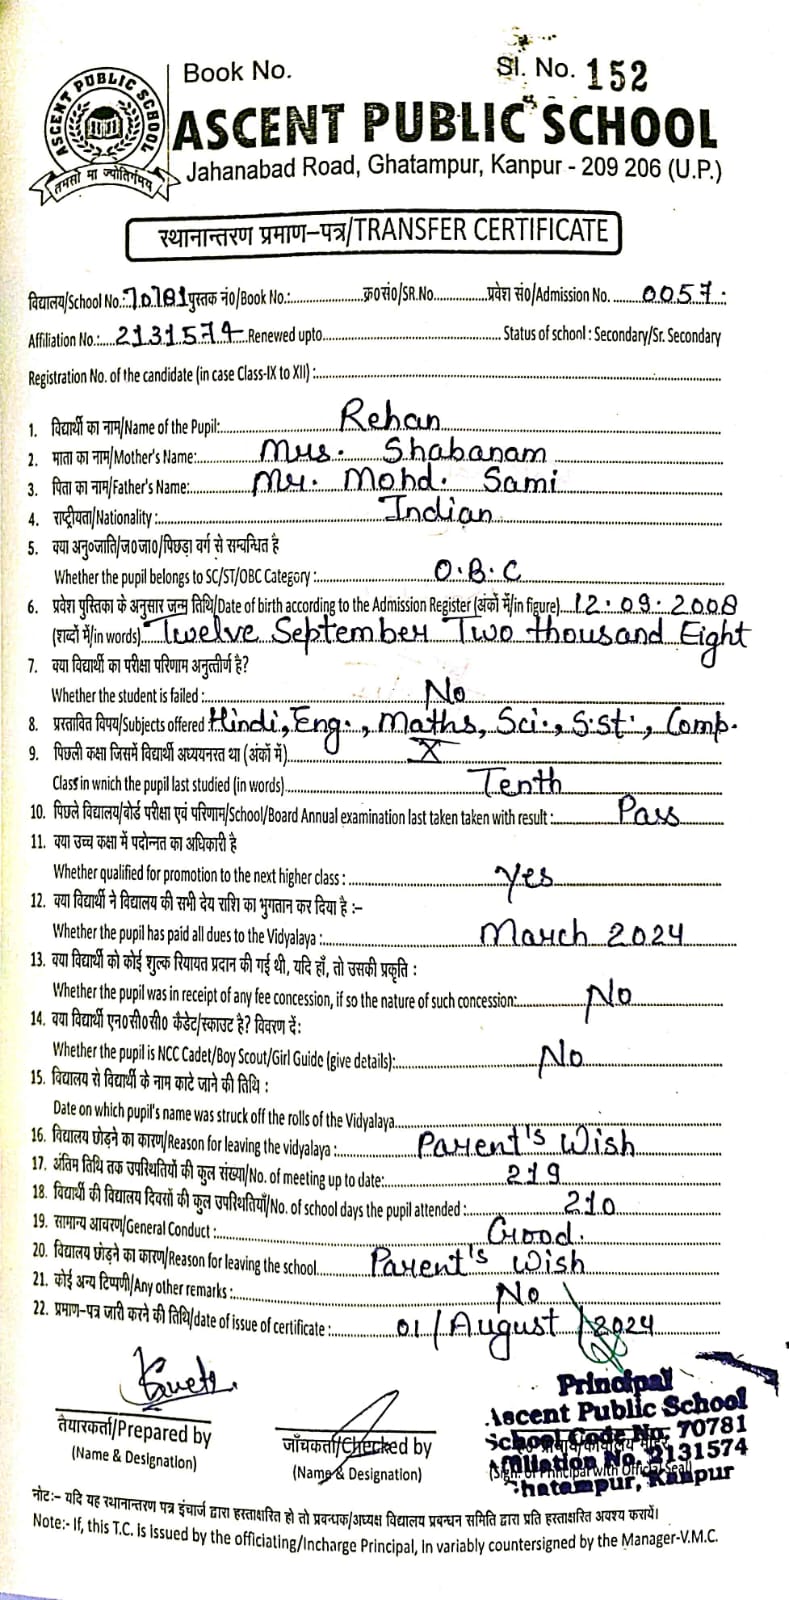 Book No.
Sl. No. 152
ASCENT PUBLIC SCHOOL
तमसो मा ज्योतिर्गमय
ASCENT PUBLIC SCHOOL
Jahanabad Road, Ghatampur, Kanpur - 209 206 (U.P.)
स्थानान्तरण प्रमाण–पत्र/TRANSFER CERTIFICATE
विद्यालय/School No.: 70781 पुस्तक नं०/Book No.:.......... क्र०सं०/SR.No.......... प्रवेश सं०/Admission No. ........0057.
Affiliation No.:....2131574 Renewed upto.......... Status of school : Secondary/Sr. Secondary
Registration No. of the candidate (in case Class-IX to XII) :..........
1. विद्यार्थी का नाम/Name of the Pupil:.......... Rehan
2. माता का नाम/Mother's Name:.......... Mrs. Shabanam
3. पिता का नाम/Father's Name:.......... Mr. Mohd. Sami
4. राष्ट्रीयता/Nationality :.......... Indian
5. क्या अनु०जाति/ज०जा०/पिछड़ा वर्ग से सम्बन्धित है
Whether the pupil belongs to SC/ST/OBC Category :.......... O.B.C
6. प्रवेश पुस्तिका के अनुसार जन्म तिथि/Date of birth according to the Admission Register (अंकों में/in figure)....12.09.2008
(शब्दों में/in words).. Twelve September Two thousand Eight
7. क्या विद्यार्थी का परीक्षा परिणाम अनुत्तीर्ण है?
Whether the student is failed :.......... No
8. प्रस्तावित विषय/Subjects offered Hindi, Eng., Maths, Sci., S.st., Comp.
9. पिछली कक्षा जिसमें विद्यार्थी अध्ययनरत था (अंकों में).......... X
Class in which the pupil last studied (in words).......... Tenth
10. पिछले विद्यालय/बोर्ड परीक्षा एवं परिणाम/School/Board Annual examination last taken taken with result :.......... Pass
11. क्या उच्च कक्षा में पदोन्नत का अधिकारी है
Whether qualified for promotion to the next higher class :.......... Yes
12. क्या विद्यार्थी ने विद्यालय की सभी देय राशि का भुगतान कर दिया है :–
Whether the pupil has paid all dues to the Vidyalaya :.......... March 2024
13. क्या विद्यार्थी को कोई शुल्क रियायत प्रदान की गई थी, यदि हाँ, तो उसकी प्रकृति :
Whether the pupil was in receipt of any fee concession, if so the nature of such concession:.......... No
14. क्या विद्यार्थी एन०सी०सी० कैडेट/स्काउट है? विवरण दें:
Whether the pupil is NCC Cadet/Boy Scout/Girl Guide (give details):.......... No
15. विद्यालय से विद्यार्थी के नाम काटे जाने की तिथि :
Date on which pupil's name was struck off the rolls of the Vidyalaya..........
16. विद्यालय छोड़ने का कारण/Reason for leaving the vidyalaya :.......... Parent's Wish
17. अंतिम तिथि तक उपस्थितियों की कुल संख्या/No. of meeting up to date:.......... 219
18. विद्यार्थी की विद्यालय दिवसों की कुल उपस्थितियाँ/No. of school days the pupil attended :.......... 210
19. सामान्य आचरण/General Conduct :.......... Good.
20. विद्यालय छोड़ने का कारण/Reason for leaving the school.......... Parent's Wish
21. कोई अन्य टिप्पणी/Any other remarks :.......... No
22. प्रमाण–पत्र जारी करने की तिथि/date of issue of certificate :.......... 01/August/2024
तैयारकर्ता/Prepared by
(Name & Designation)
जाँचकर्ता/Checked by
(Name & Designation)
Principal
Ascent Public School
School Code No. 70781
Affiliation No. 2131574
Ghatampur, Kanpur
(Sign. of Principal with Official Seal)
नोट:– यदि यह स्थानान्तरण पत्र इंचार्ज द्वारा हस्ताक्षरित हो तो प्रबन्धक/अध्यक्ष विद्यालय प्रबन्धन समिति द्वारा प्रति हस्ताक्षरित अवश्य करायें।
Note:- If, this T.C. is issued by the officiating/Incharge Principal, In variably countersigned by the Manager-V.M.C.